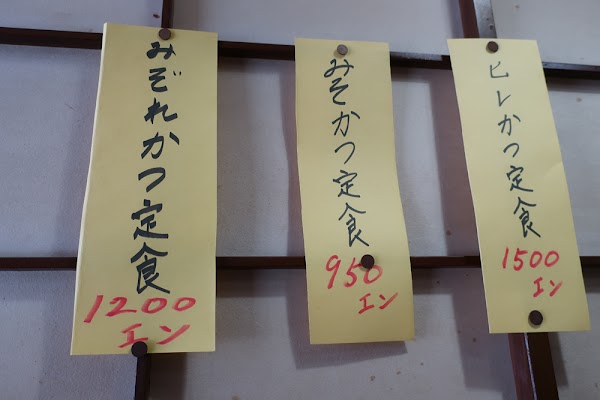 みぞれかつ定食
1200
エン
みそかつ定食
950
エン
ヒレかつ定食
1500
エン